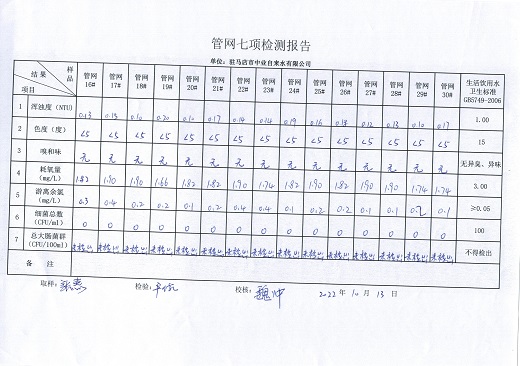 管网七项检测报告
单位：驻马店市中业自来水有限公司
结果 样品 项目 管网16# 管网17# 管网18# 管网19# 管网20# 管网21# 管网22# 管网23# 管网24# 管网25# 管网26# 管网27# 管网28# 管网29# 管网30# 生活饮用水卫生标准GB5749-2006
1 浑浊度（NTU） 0.13 0.15 0.10 0.20 0.10 0.17 0.14 0.14 0.19 0.16 0.18 0.12 0.13 0.10 0.17 1.00
2 色度（度） <5 <5 <5 <5 <5 <5 <5 <5 <5 <5 <5 <5 <5 <5 <5 15
3 嗅和味 无 无 无 无 无 无 无 无 无 无 无 无 无 无 无 无异臭、异味
4 耗氧量（mg/L） 1.82 1.90 1.90 1.66 1.82 1.82 1.90 1.74 1.82 1.90 1.82 1.90 1.90 1.74 1.74 3.00
5 游离余氯（mg/L） 0.3 0.4 0.2 0.2 0.1 0.2 0.4 0.4 0.1 0.2 0.2 0.1 0.1 0.2 0.1 ≥0.05
6 细菌总数（CFU/ml） 0 0 0 0 0 0 0 0 0 0 0 0 0 0 0 100
7 总大肠菌群（CFU/100ml） 未检出 未检出 未检出 未检出 未检出 未检出 未检出 未检出 未检出 未检出 未检出 未检出 未检出 未检出 未检出 不得检出
备 注
取样： 检验： 校核： 2022年10月13日